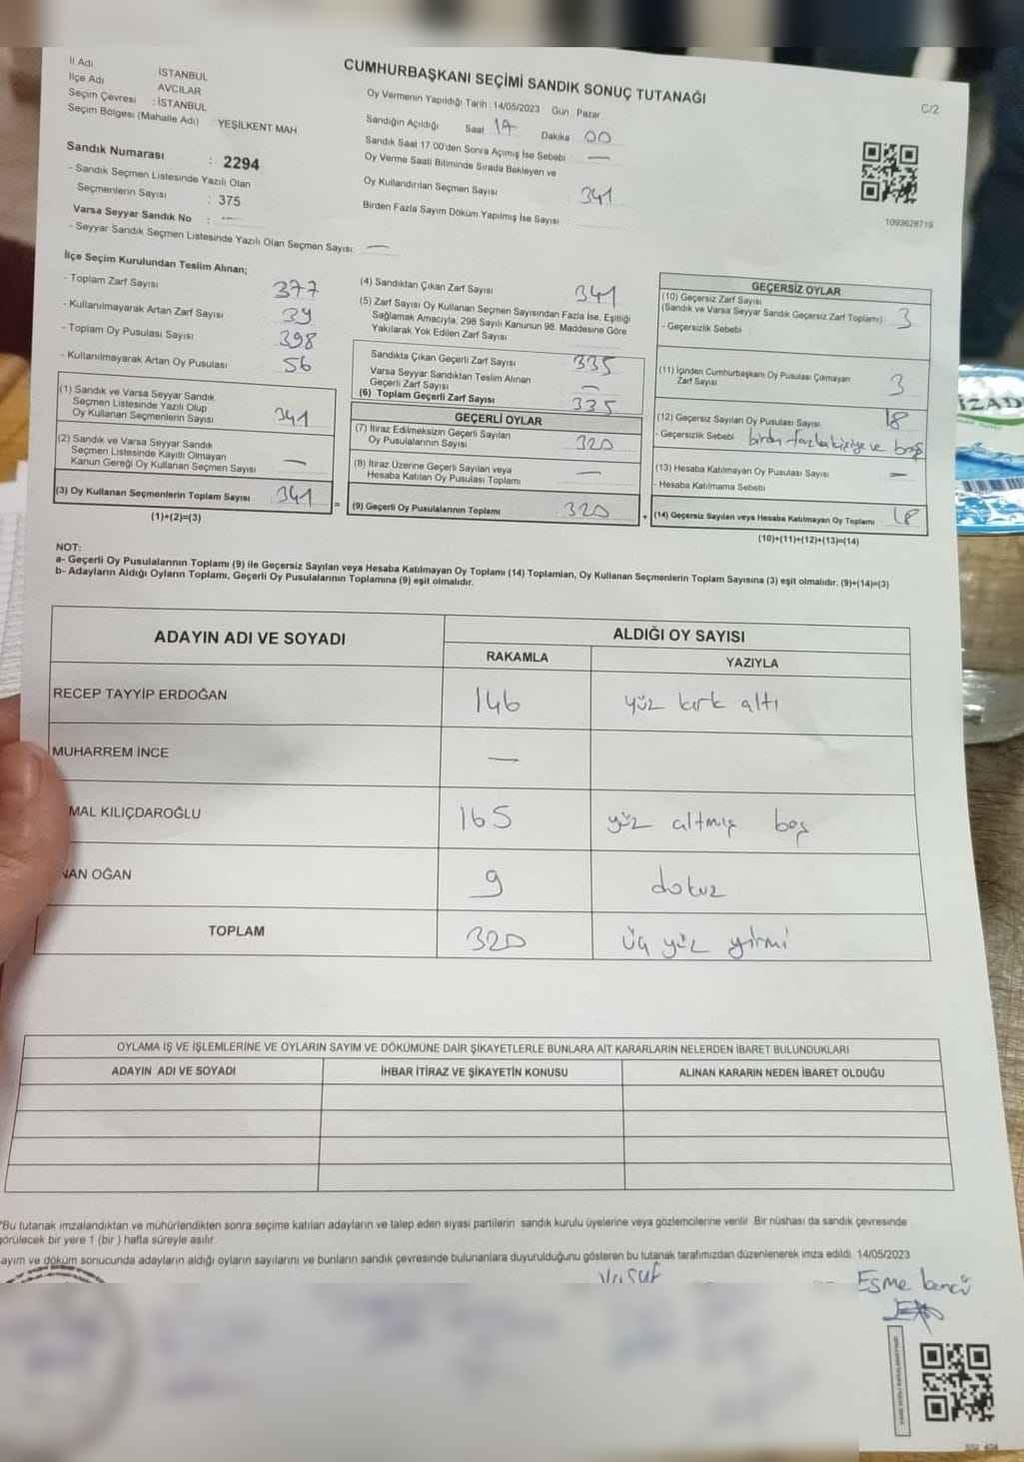 İl Adı İSTANBUL
İlçe Adı AVCILAR
Seçim Çevresi : İSTANBUL
Seçim Bölgesi (Mahalle Adı) YEŞİLKENT MAH
Sandık Numarası : 2294
- Sandık Seçmen Listesinde Yazılı Olan
Seçmenlerin Sayısı : 375
Varsa Seyyar Sandık No : —
- Seyyar Sandık Seçmen Listesinde Yazılı Olan Seçmen Sayısı: —
CUMHURBAŞKANI SEÇİMİ SANDIK SONUÇ TUTANAĞI
C/2
Oy Vermenin Yapıldığı Tarih : 14/05/2023 Gün : Pazar
Sandığın Açıldığı Saat 17 Dakika 00
Sandık Saat 17.00'den Sonra Açımış İse Sebebi —
Oy Verme Saati Bitiminde Sırada Bekleyen ve
Oy Kullandırılan Seçmen Sayısı 341
Birden Fazla Sayım Döküm Yapılmış İse Sayısı
1093628719
İlçe Seçim Kurulundan Teslim Alınan;
- Toplam Zarf Sayısı 377
- Kullanılmayarak Artan Zarf Sayısı 39
- Toplam Oy Pusulası Sayısı 398
- Kullanılmayarak Artan Oy Pusulası 56
(1) Sandık ve Varsa Seyyar Sandık
Seçmen Listesinde Yazılı Olup
Oy Kullanan Seçmenlerin Sayısı 341
(2) Sandık ve Varsa Seyyar Sandık
Seçmen Listesinde Kayıtlı Olmayan
Kanun Gereği Oy Kullanan Seçmen Sayısı —
(3) Oy Kullanan Seçmenlerin Toplam Sayısı 341 =
(1)+(2)=(3)
(4) Sandıktan Çıkan Zarf Sayısı 341
(5) Zarf Sayısı Oy Kullanan Seçmen Sayısından Fazla İse, Eşitliği
Sağlamak Amacıyla, 298 Sayılı Kanunun 98. Maddesine Göre
Yakılarak Yok Edilen Zarf Sayısı
Sandıkta Çıkan Geçerli Zarf Sayısı 335
Varsa Seyyar Sandıktan Teslim Alınan
Geçerli Zarf Sayısı —
(6) Toplam Geçerli Zarf Sayısı 335
GEÇERLİ OYLAR
(7) İtiraz Edilmeksizin Geçerli Sayılan
Oy Pusulalarının Sayısı 320
(8) İtiraz Üzerine Geçerli Sayılan veya
Hesaba Katılan Oy Pusulası Toplamı —
(9) Geçerli Oy Pusulalarının Toplamı 320 +
GEÇERSİZ OYLAR
(10) Geçersiz Zarf Sayısı
(Sandık ve Varsa Seyyar Sandık Geçersiz Zarf Toplamı) 3
- Geçersizlik Sebebi
(11) İçinden Cumhurbaşkanı Oy Pusulası Çıkmayan
Zarf Sayısı 3
(12) Geçersiz Sayılan Oy Pusulası Sayısı 18
- Geçersizlik Sebebi birden fazla kişiye ve boş
(13) Hesaba Katılmayan Oy Pusulası Sayısı —
- Hesaba Katılmama Sebebi
(14) Geçersiz Sayılan veya Hesaba Katılmayan Oy Toplamı 18
(10)+(11)+(12)+(13)=(14)
NOT:
a- Geçerli Oy Pusulalarının Toplamı (9) ile Geçersiz Sayılan veya Hesaba Katılmayan Oy Toplamı (14) Toplamları, Oy Kullanan Seçmenlerin Toplam Sayısına (3) eşit olmalıdır. (9)+(14)=(3)
b- Adayların Aldığı Oyların Toplamı, Geçerli Oy Pusulalarının Toplamına (9) eşit olmalıdır.
ADAYIN ADI VE SOYADI ALDIĞI OY SAYISI
RAKAMLA YAZIYLA
RECEP TAYYİP ERDOĞAN 146 yüz kırk altı
MUHARREM İNCE —
MAL KILIÇDAROĞLU 165 yüz altmış beş
NAN OĞAN 9 dokuz
TOPLAM 320 üç yüz yirmi
OYLAMA İŞ VE İŞLEMLERİNE VE OYLARIN SAYIM VE DÖKÜMÜNE DAİR ŞİKAYETLERLE BUNLARA AİT KARARLARIN NELERDEN İBARET BULUNDUKLARI
ADAYIN ADI VE SOYADI İHBAR İTİRAZ VE ŞİKAYETİN KONUSU ALINAN KARARIN NEDEN İBARET OLDUĞU
*Bu tutanak imzalandıktan ve mühürlendikten sonra seçime katılan adayların ve talep eden siyasi partilerin sandık kurulu üyelerine veya gözlemcilerine verilir. Bir nüshası da sandık çevresinde
görülecek bir yere 1 (bir ) hafta süreyle asılır.
ayım ve döküm sonucunda adayların aldığı oyların sayılarını ve bunların sandık çevresinde bulunanlara duyurulduğunu gösteren bu tutanak tarafımızdan düzenlenerek imza edildi. 14/05/2023
Yusuf
Esme